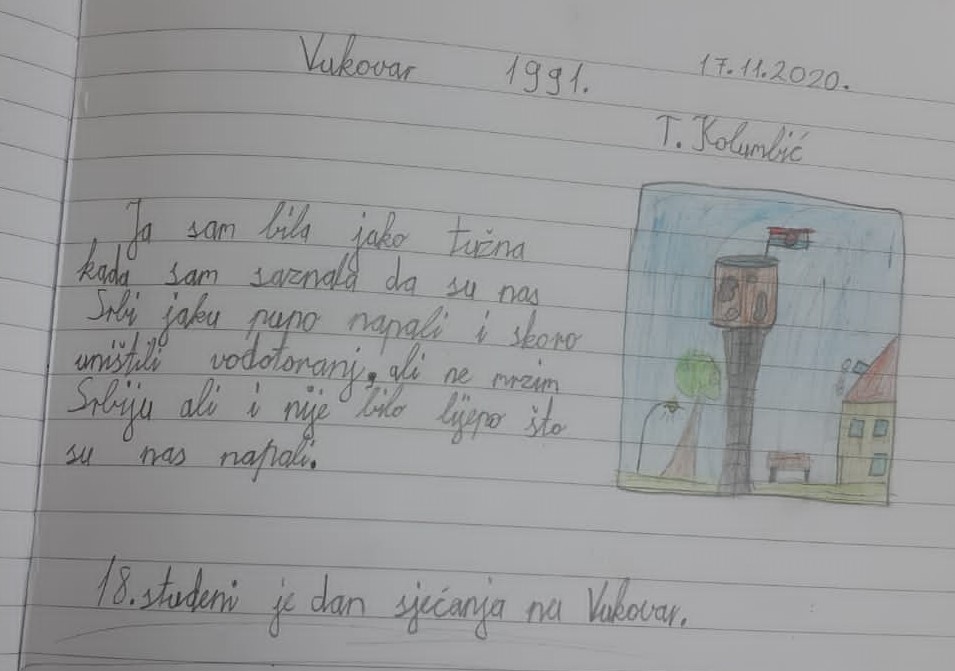 Vukovar 1991. 17.11.2020.
T. Kolumbić
Ja sam bila jako tužna
kada sam saznala da su nas
Srbi jaku puno napali i skoro
uništili vodotoranj, ali ne mrzim
Srbiju ali i nije bilo lijepo što
su nas napali.
18. studeni je dan sjećanja na Vukovar.